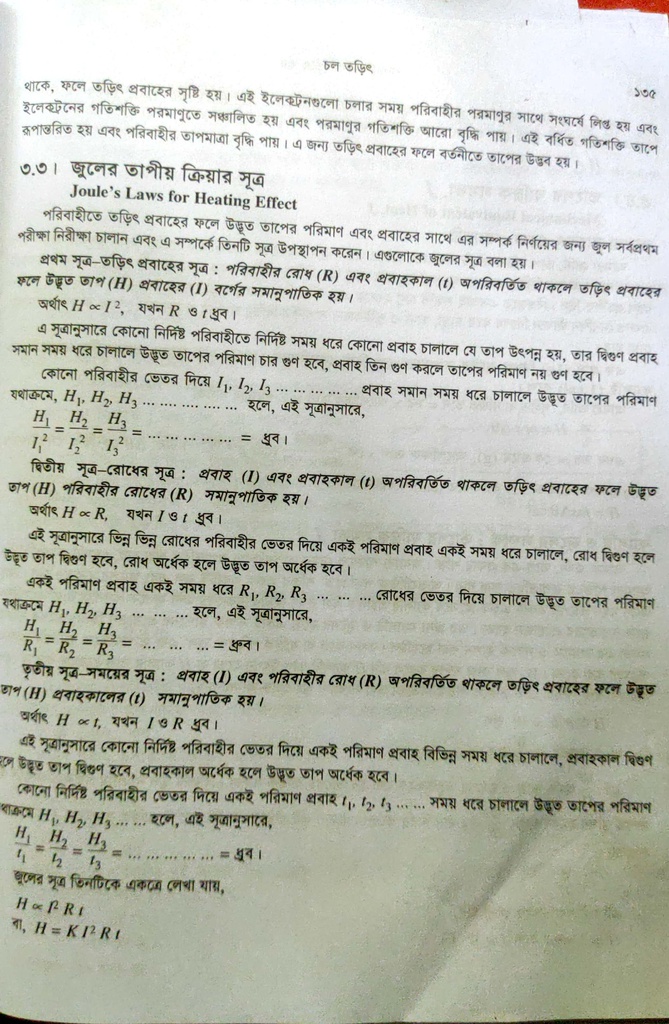 চল তড়িৎ
১৩৫
থাকে, ফলে তড়িৎ প্রবাহের সৃষ্টি হয়। এই ইলেকট্রনগুলো চলার সময় পরিবাহীর পরমাণুর সাথে সংঘর্ষে লিপ্ত হয় এবং
ইলেকট্রনের গতিশক্তি পরমাণুতে সঞ্চালিত হয় এবং পরমাণুর গতিশক্তি আরো বৃদ্ধি পায়। এই বর্ধিত গতিশক্তি তাপে
রূপান্তরিত হয় এবং পরিবাহীর তাপমাত্রা বৃদ্ধি পায়। এ জন্য তড়িৎ প্রবাহের ফলে বর্তনীতে তাপের উদ্ভব হয়।
৩.৩। জুলের তাপীয় ক্রিয়ার সূত্র
Joule's Laws for Heating Effect
পরিবাহীতে তড়িৎ প্রবাহের ফলে উদ্ভূত তাপের পরিমাণ এবং প্রবাহের সাথে এর সম্পর্ক নির্ণয়ের জন্য জুল সর্বপ্রথম
পরীক্ষা নিরীক্ষা চালান এবং এ সম্পর্কে তিনটি সূত্র উপস্থাপন করেন। এগুলোকে জুলের সূত্র বলা হয়।
প্রথম সূত্র–তড়িৎ প্রবাহের সূত্র : পরিবাহীর রোধ (R) এবং প্রবাহকাল (t) অপরিবর্তিত থাকলে তড়িৎ প্রবাহের
ফলে উদ্ভূত তাপ (H) প্রবাহের (I) বর্গের সমানুপাতিক হয়।
অর্থাৎ H ∝ I², যখন R ও t ধ্রুব।
এ সূত্রানুসারে কোনো নির্দিষ্ট পরিবাহীতে নির্দিষ্ট সময় ধরে কোনো প্রবাহ চালালে যে তাপ উৎপন্ন হয়, তার দ্বিগুণ প্রবাহ
সমান সময় ধরে চালালে উদ্ভূত তাপের পরিমাণ চার গুণ হবে, প্রবাহ তিন গুণ করলে তাপের পরিমাণ নয় গুণ হবে।
কোনো পরিবাহীর ভেতর দিয়ে I₁, I₂, I₃ ... ... ... ... ... প্রবাহ সমান সময় ধরে চালালে উদ্ভূত তাপের পরিমাণ
যথাক্রমে, H₁, H₂, H₃ ... ... ... ... ... হলে, এই সূত্রানুসারে,
H₁/I₁² = H₂/I₂² = H₃/I₃² = ... ... ... ... ... = ধ্রুব।
দ্বিতীয় সূত্র–রোধের সূত্র : প্রবাহ (I) এবং প্রবাহকাল (t) অপরিবর্তিত থাকলে তড়িৎ প্রবাহের ফলে উদ্ভূত
তাপ (H) পরিবাহীর রোধের (R) সমানুপাতিক হয়।
অর্থাৎ H ∝ R, যখন I ও t ধ্রুব।
এই সূত্রানুসারে ভিন্ন ভিন্ন রোধের পরিবাহীর ভেতর দিয়ে একই পরিমাণ প্রবাহ একই সময় ধরে চালালে, রোধ দ্বিগুণ হলে
উদ্ভূত তাপ দ্বিগুণ হবে, রোধ অর্ধেক হলে উদ্ভূত তাপ অর্ধেক হবে।
একই পরিমাণ প্রবাহ একই সময় ধরে R₁, R₂, R₃ ... ... ... রোধের ভেতর দিয়ে চালালে উদ্ভূত তাপের পরিমাণ
যথাক্রমে H₁, H₂, H₃ ... ... ... হলে, এই সূত্রানুসারে,
H₁/R₁ = H₂/R₂ = H₃/R₃ = ... ... ... = ধ্রুব।
তৃতীয় সূত্র–সময়ের সূত্র : প্রবাহ (I) এবং পরিবাহীর রোধ (R) অপরিবর্তিত থাকলে তড়িৎ প্রবাহের ফলে উদ্ভূত
তাপ (H) প্রবাহকালের (t) সমানুপাতিক হয়।
অর্থাৎ H ∝ t, যখন I ও R ধ্রুব।
এই সূত্রানুসারে কোনো নির্দিষ্ট পরিবাহীর ভেতর দিয়ে একই পরিমাণ প্রবাহ বিভিন্ন সময় ধরে চালালে, প্রবাহকাল দ্বিগুণ
হলে উদ্ভূত তাপ দ্বিগুণ হবে, প্রবাহকাল অর্ধেক হলে উদ্ভূত তাপ অর্ধেক হবে।
কোনো নির্দিষ্ট পরিবাহীর ভেতর দিয়ে একই পরিমাণ প্রবাহ t₁, t₂, t₃ ... ... সময় ধরে চালালে উদ্ভূত তাপের পরিমাণ
যথাক্রমে H₁, H₂, H₃ ... ... হলে, এই সূত্রানুসারে,
H₁/t₁ = H₂/t₂ = H₃/t₃ = ... ... ... ... ... = ধ্রুব।
জুলের সূত্র তিনটিকে একত্রে লেখা যায়,
H ∝ I² R t
বা, H = K I² R t